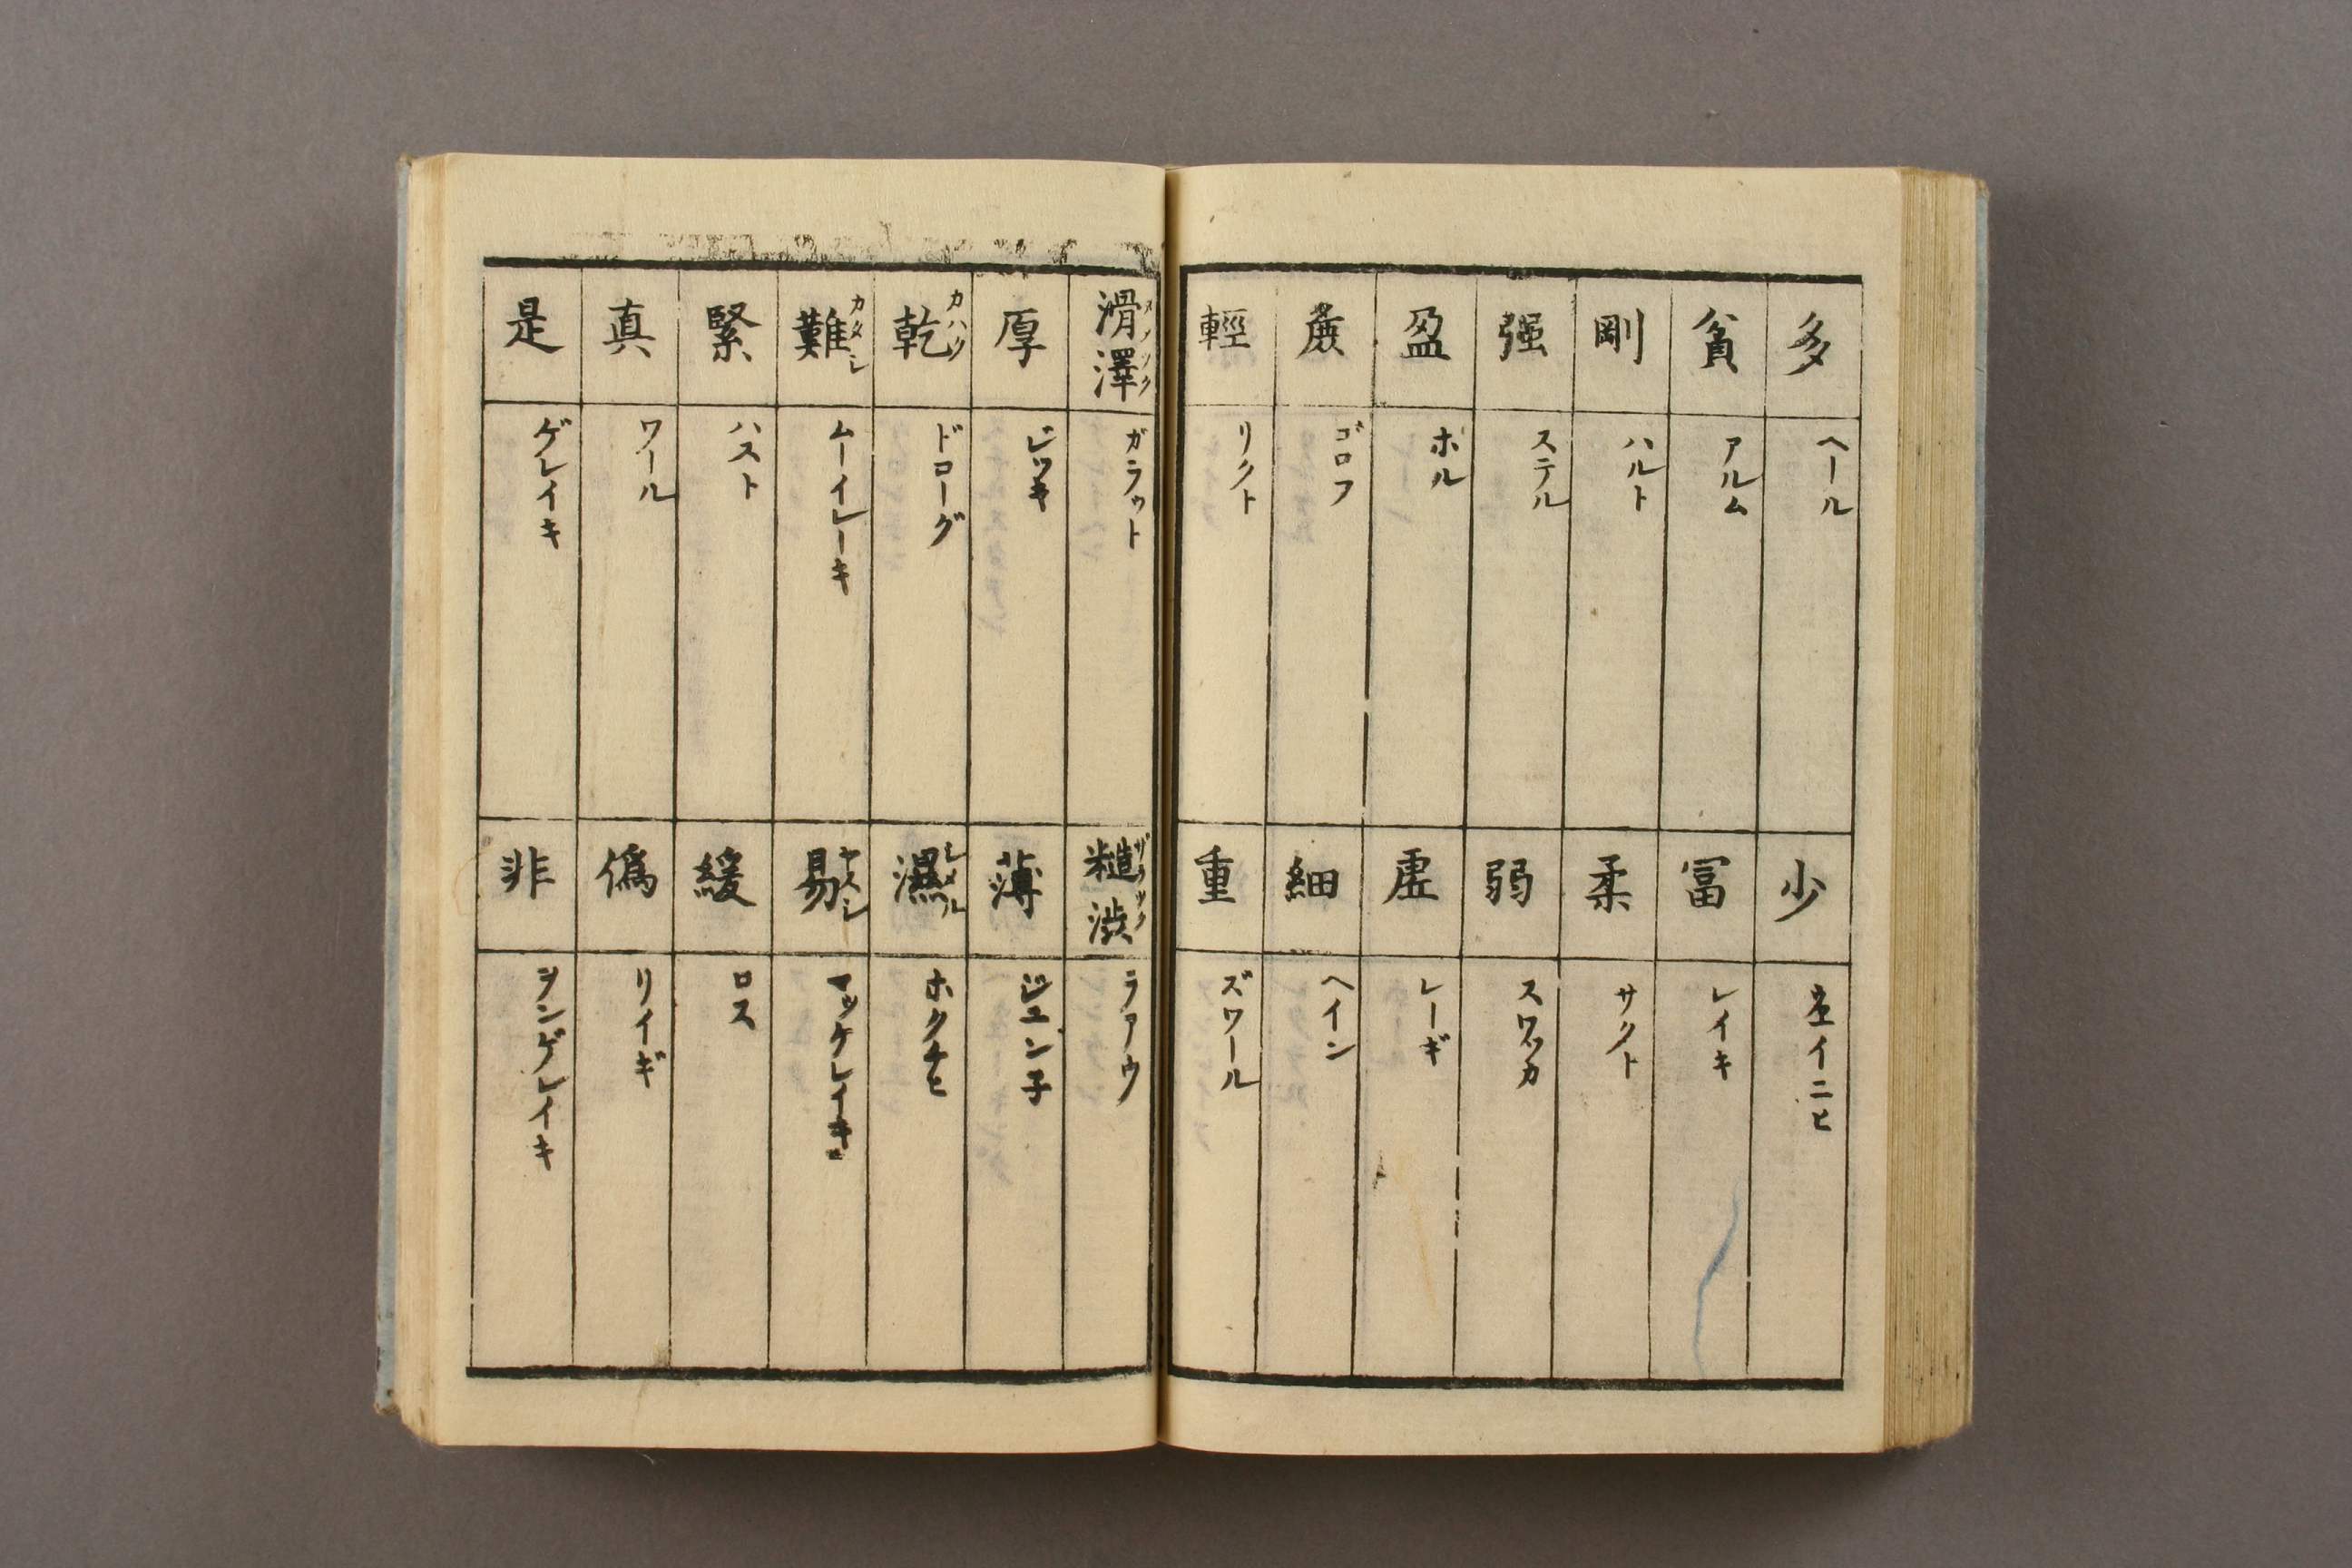 多 ヘール
少 ヱイニヒ
貧 アルム
冨 レイキ
剛 ハルト
柔 サクト
强 ステル
弱 スワッカ
盈 ボル
虚 レーギ
麁 ゴロフ
細 ヘイン
輕 リクト
重 ズワール
滑澤 ガラット
糙渋 ザラツク ラアウ
厚 ヂッキ
薄 ヂユン子
乾 カハク ドローグ
濕 シメル ホクチヒ
難 カタシ ムーイレーキ
易 ヤスシ マッケレイキ
緊 ハスト
緩 ロス
真 ワール
僞 リイギ
是 ゲレイキ
非 ヲンゲレイキ